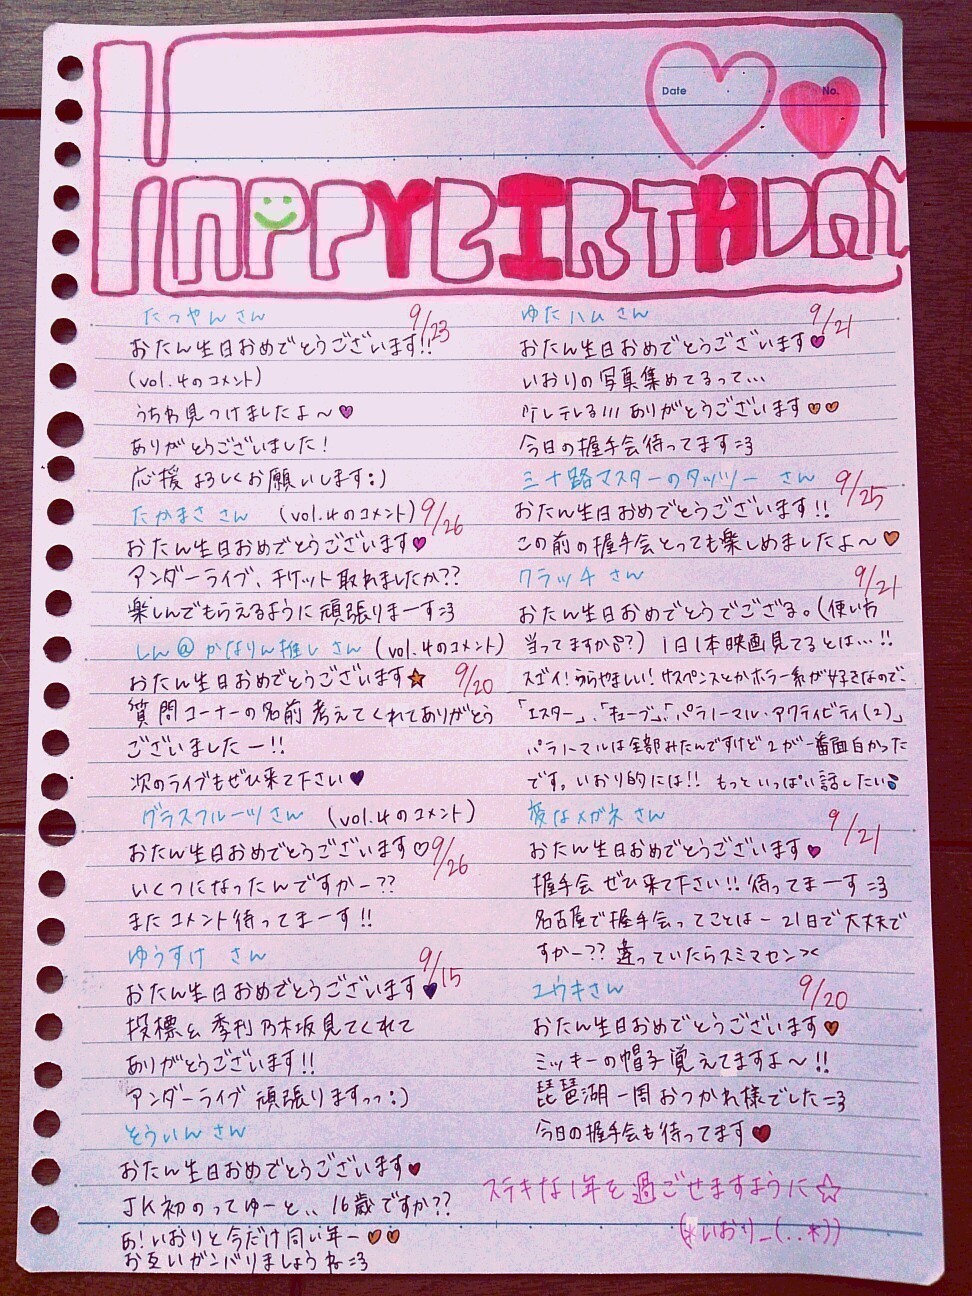 Date
No.
HAPPY BIRTHDAY
たつやんさん 9/23
おたん生日おめでとうございます!!
(vol.4のコメント)
うちわ見つけましたよ〜♥
ありがとうございました!
応援よろしくお願いします:)
たかまささん (vol.4のコメント) 9/26
おたん生日おめでとうございます♥
アンダーライブ、チケット取れましたか??
楽しんでもらえるように頑張りまーす=3
しん@かなりん推しさん (vol.4のコメント)
おたん生日おめでとうございます★ 9/20
質問コーナーの名前考えてくれてありがとう
ございましたー!!
次のライブもぜひ来て下さい♥
グラスフルーツさん (vol.4のコメント)
おたん生日おめでとうございます♡ 9/26
いくつになったんですかー??
またコメント待ってまーす!!
ゆうすけさん 9/15
おたん生日おめでとうございます♥
投標& 季刊乃木坂見てくれて
ありがとうございます!!
アンダーライブ頑張りますっっ:)
とういんさん
おたん生日おめでとうございます♥
JK初のってゆーと、、16歳ですか??
あ!いおりと今だけ同い年ー♡♡
お互いガンバりましょうね=3
ゆたハムさん 9/21
おたん生日おめでとうございます♥
いおりの写真集めてるって…
テレる/// ありがとうございます♡♡
今日の握手会待ってます=3
三十路マスターのタッツーさん 9/25
おたん生日おめでとうございます!!
この前の握手会とっても楽しめましたよ〜♡
クラッチさん 9/21
おたん生日おめでとうでござる。(使い方
当ってますか??) 1日1本映画見てるとは…!!
スゴイ!うらやましい!サスペンスとかホラー系が好きなので、
「エスター」、「キューブ」、「パラノーマル・アクティビティ(2)」
パラノーマルは全部みたんですけど2が一番面白かった
です。いおり的には!! もっといっぱい話したい
変なメガネさん 9/21
おたん生日おめでとうございます♥
握手会ぜひ来て下さい!! 待ってまーす=3
名古屋で握手会ってことはー21日で大丈夫で
すかー?? 違っていたらスミマセン><
ユウキさん 9/20
おたん生日おめでとうございます♥
ミッキーの帽子覚えてますよ〜!!
琵琶湖一周おつかれ様でした=3
今日の握手会も待ってます♥
ステキな1年を過ごせますように☆
(*いおり_(..*))